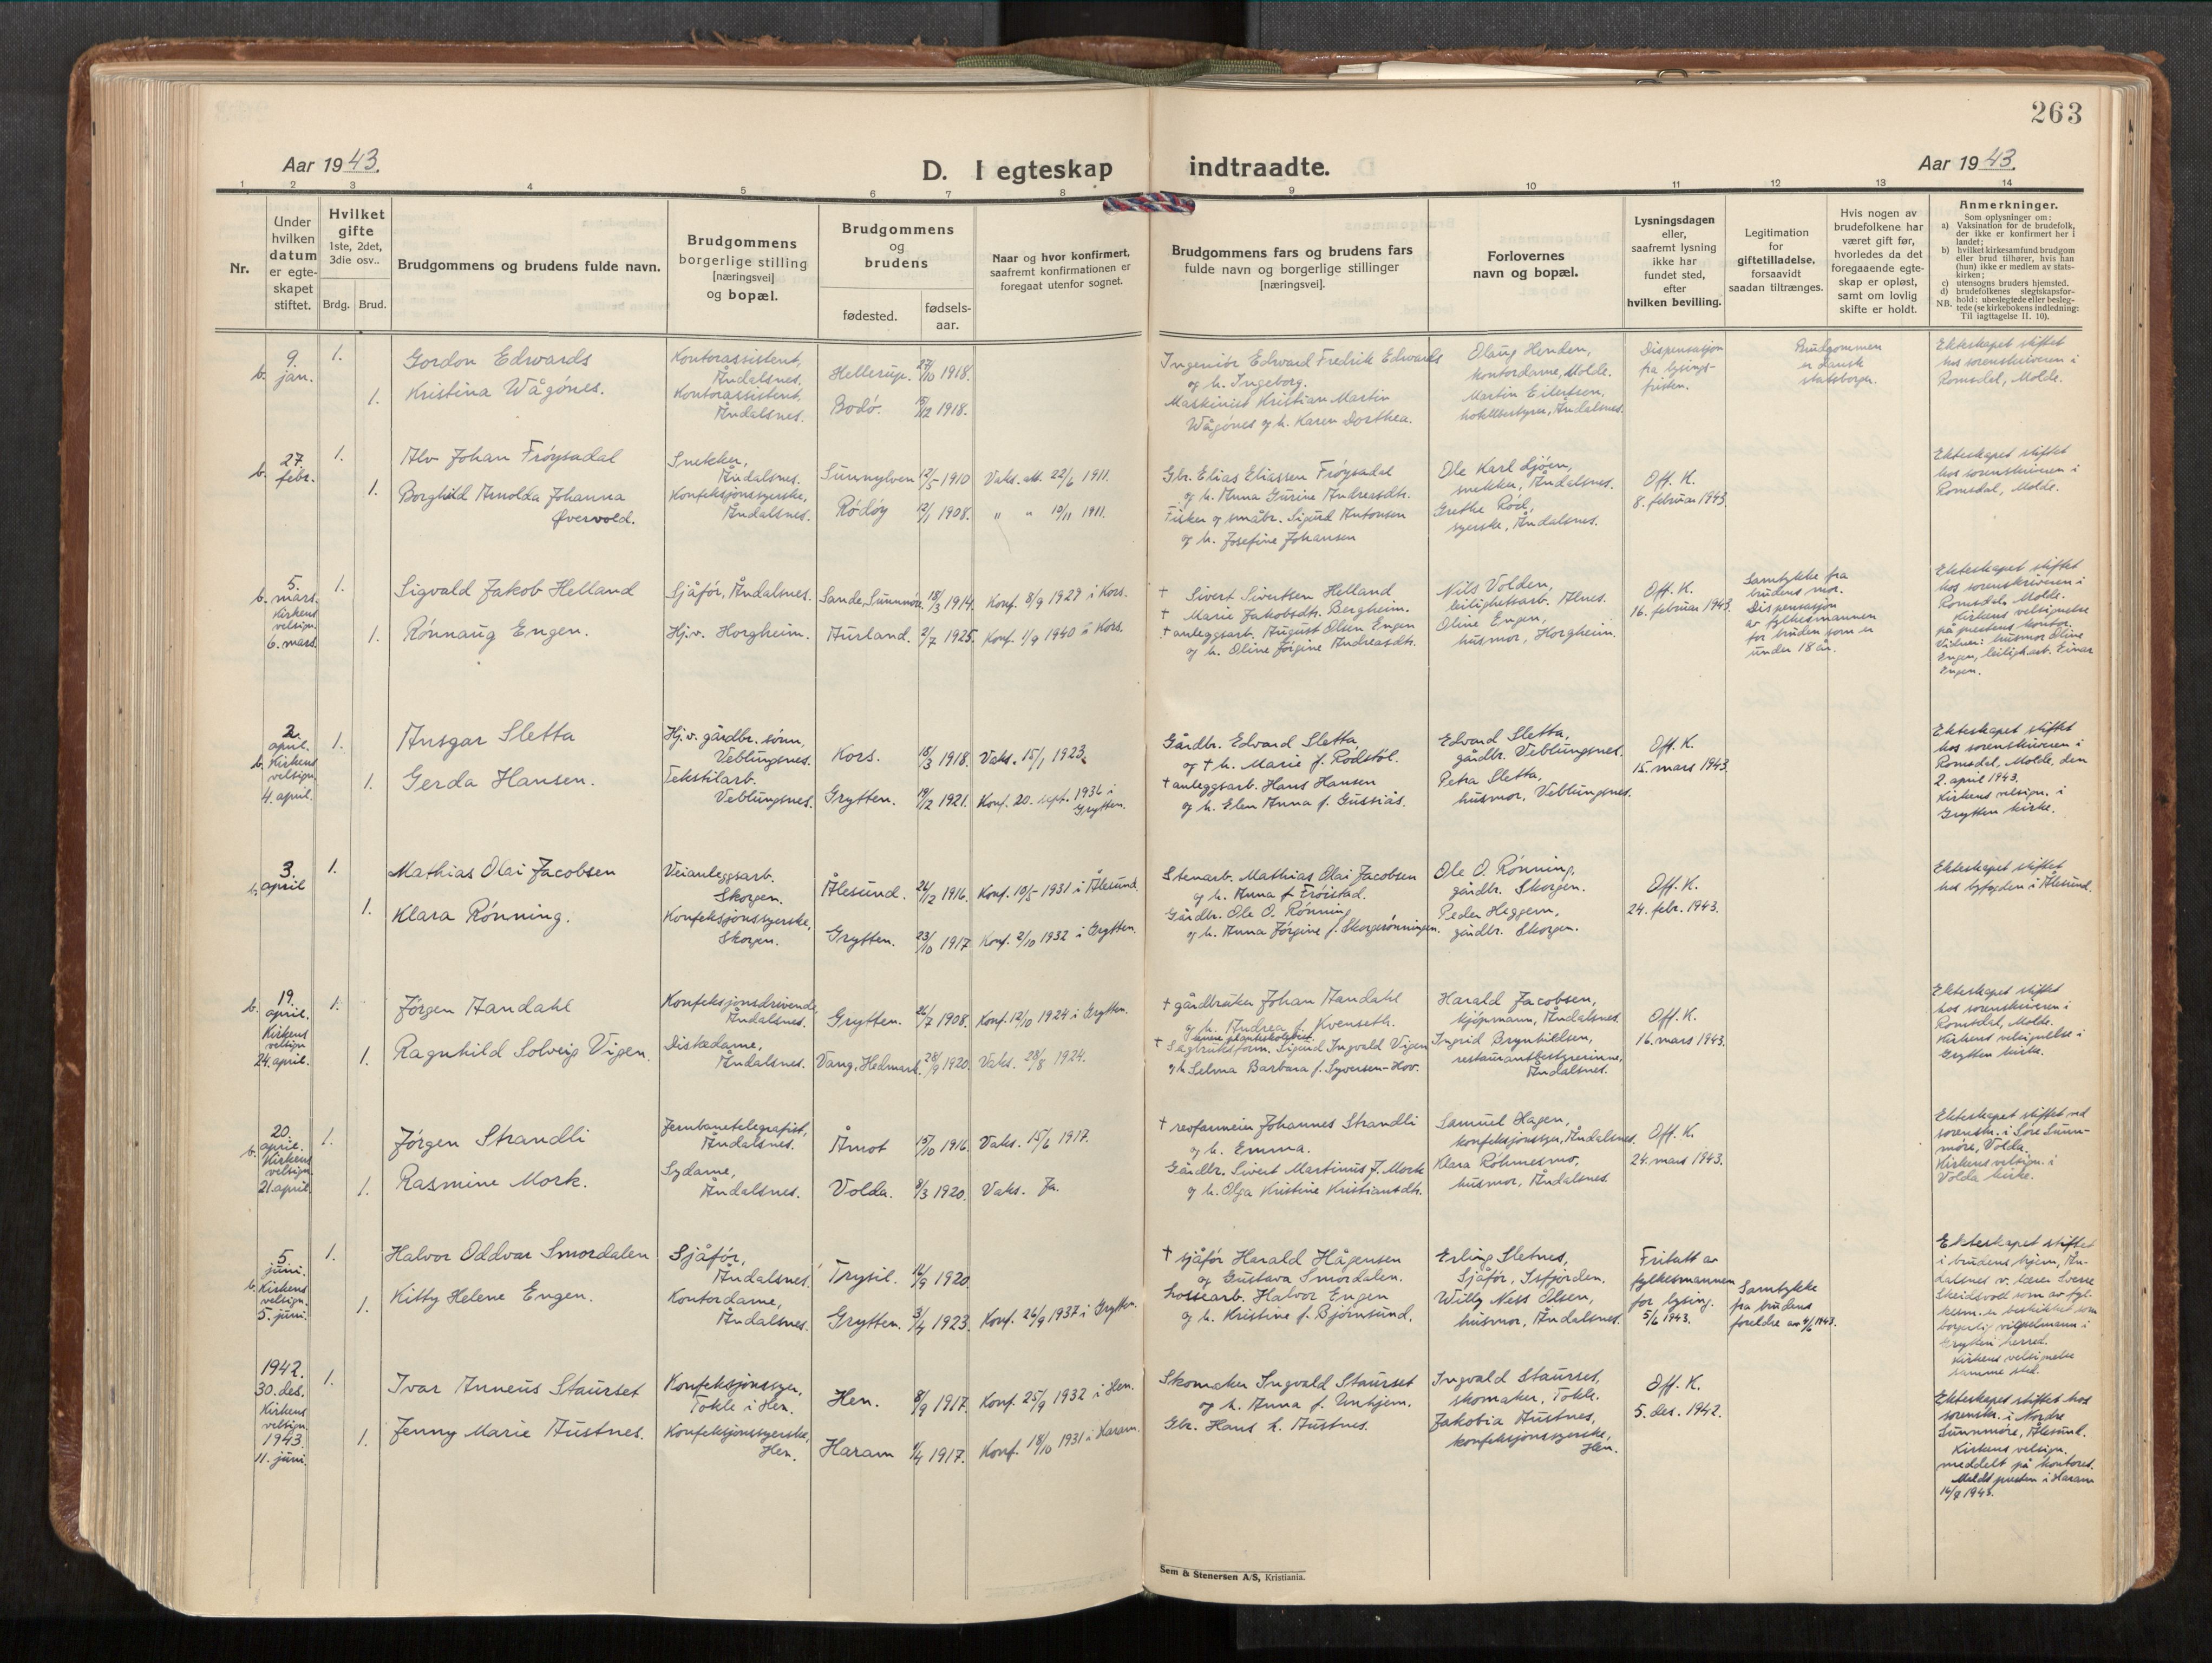 263
Aar 1943.
D. I egteskap indtraadte.
Aar 1943.
1 2 3 4 5 6 7 8 9 10 11 12 13 14
Nr.
Under hvilken datum er egteskapet stiftet.
Hvilket gifte 1ste, 2det, 3die osv..
Brdg. Brud.
Brudgommens og brudens fulde navn.
Brudgommens borgerlige stilling [næringsvei] og bopæl.
Brudgommens og brudens
fødested.
fødsels-aar.
Naar og hvor konfirmert, saafremt konfirmationen er foregaat utenfor sognet.
Brudgommens fars og brudens fars fulde navn og borgerlige stillinger [næringsvei].
Forlovernes navn og bopæl.
Lysningsdagen eller, saafremt lysning ikke har fundet sted, efter hvilken bevilling.
Legitimation for giftetilladelse, forsaavidt saadan tiltrænges.
Hvis nogen av brudefolkene har været gift før, hvorledes da det foregaaende egteskap er opløst, samt om lovlig skifte er holdt.
Anmerkninger.
Som oplysninger om:
a) Vaksination for de brudefolk, der ikke er konfirmert her i landet;
b) hvilket kirkesamfund brudgom eller brud tilhører, hvis han (hun) ikke er medlem av statskirken;
c) utensogns bruders hjemsted.
d) brudefolkenes slegtskapsforhold: ubeslegtede eller beslegtede (se kirkebokens indledning: NB. Til iagttagelse II. 10).
b. 9. jan.
1.
Gordon Edwards
Kontorassistent, Åndalsnes.
Hellerup. 27/10 1918.
Ingeniör Edward Fredrik Edwards og h. Ingeborg.
Olaug Henden, kontordame, Molde.
Dispensasjon fra lysingsfristen.
Brudgommen er dansk statsborger.
Ekteskapet stiftet hos sorenskriveren i Romsdal, Molde.
1.
Kristina Vågönes.
Kontorassistent, Åndalsnes.
Bodö. 15/12 1918.
Maskinist Kristian Martin Wågönes og h. Karen Dorthea.
Martin Eilertsen, hotellbestyrer, Åndalsnes.
b. 27. febr.
1.
Alv Johan Fröysadal
Snekker, Åndalsnes.
Sunnylven 12/5 1910
Vaks. att. 22/6 1911.
Gbr. Elias Eliassen Fröysadal og h. Anna Gurine Andreasdtr.
Ole Karl Sjöen, snekker, Åndalsnes.
Off. K. 8. februar 1943.
Ekteskapet stiftet hos sorenskriveren i Romsdal, Molde.
1.
Borghild Arnolda Johanna Øvervold.
Konfeksjonssyerske, Åndalsnes.
Rödöy 12/1 1908.
" " 10/11 1911.
Fisker og småbr. Sigurd Antonsen og h. Josefine Johansen
Grethe Röd, syerske, Åndalsnes.
b. 5. mars. Kirkens velsign. 6. mars.
1.
Sigvald Jakob Helland
Sjåför, Åndalsnes.
Sande, Sunnmöre 18/3 1914.
Konf. 8/9 1929 i Kors.
† Sivert Sivertsen Helland
† Marie Jakobsdtr. Bergheim.
Nils Volden, leilighetsarb. Alnes.
Off. K. 16. februar 1943.
Samtykke fra brudens mor. Dispensasjon av fylkesmannen for bruden som er under 18 år.
Ekteskapet stiftet hos sorenskriveren i Romsdal, Molde. Kirkens velsignelse på prestens kontor. Vitner: husmor Oline Engen, leilighetsarb. Einar Engen.
1.
Rönnaug Engen.
Hj.v. Horgheim.
Aurland. 2/7 1925.
Konf. 1/9 1940 i Kors.
† anleggsarb. August Olsen Engen og h. Oline Jörgine Andreasdtr.
Oline Engen, husmor, Horgheim.
b. 2. april. Kirkens velsign. 4. april.
1.
Ansgar Sletta
Hj.v. gårdbr. sönn, Veblungsnes.
Kors. 18/3 1918.
Vaks. 15/1 1923.
Gårdbr. Edvard Sletta og † h. Marie f. Rödstöl.
Edvard Sletta, gårdbr. Veblungsnes.
Off. K. 15. mars 1943.
Ekteskapet stiftet hos sorenskriveren i Romsdal, Molde, den 2. april 1943. Kirkens velsign. i Grytten kirke.
1.
Gerda Hansen.
Tekstilarb. Veblungsnes.
Grytten. 19/12 1921.
Konf. 20. sept. 1936 i Grytten.
† anleggsarb. Hans Hansen og h. Elen Anna f. Gussiås.
Petra Sletta, husmor, Veblungsnes.
b. 3. april
1.
Mathias Olai Jacobsen
Veianleggsarb. Skorgen.
Ålesund. 24/12 1916.
Konf. 10/5 1931 i Ålesund.
Stenarb. Mathias Olai Jacobsen og h. Anna f. Fröistad.
Ole O. Rönning, gårdbr. Skorgen.
Off. K. 24. febr. 1943.
Ekteskapet stiftet hos byfogden i Ålesund.
1.
Klara Rönning.
Konfeksjonssyerske, Skorgen.
Grytten. 23/10 1917
Konf. 2/10 1932 i Grytten.
Gårdbr. Ole O. Rönning og h. Anna Jörgine f. Skorgerönningen.
Peder Heggem, gårdbr. Skorgen.
b. 19. april. Kirkens velsign. 24. april.
1.
Jörgen Aandahl
Konfeksjonsdrivende, Åndalsnes.
Grytten. 26/7 1908.
Konf. 12/10 1924 i Grytten.
† gårdbruker Johan Aandahl og h. Andrea f. Kvenseth.
Harald Jacobsen, kjöpmann, Åndalsnes.
Off. K. 16. mars 1943.
Ekteskapet stiftet hos sorenskriveren i Romsdal, Molde. Kirkens velsignelse i Grytten kirke.
1.
Ragnhild Solveig Vigen.
Diskedame, Åndalsnes.
Vang, Hedmark. 28/9 1920.
Vaks. 28/8 1924.
† Sagbruksform. Sigurd Ingvald Vigen og h Selma Barbara f. Syversen-Hov.
Ingrid Brynhildsen, restaurantbestyrerinne, Åndalsnes.
b. 20. april. Kirkens velsign. 21. april.
1.
Jörgen Strandli
Jernbanetelegrafist, Åndalsnes.
Åmot 15/10 1916.
Vaks. 15/6 1917.
† Johannes Strandli og h. Emma.
Samuel Hagen, konfeksjonssyer, Åndalsnes.
Off. K. 24. mars 1943.
Ekteskapet stiftet ved sorenskr. i Söre Sunnmöre, Volda. Kirkens velsign. i Volda kirke.
1.
Rasmine Mork.
Sydame, Åndalsnes.
Volda. 8/3 1920.
Vaks. Ja.
Gårdbr. Sivert Martinus J. Mork og h. Olga Kristine Kristiansdtr.
Klara Röhmesmo, husmor, Åndalsnes.
b. 5 juni. Kirkens velsign. 5. juni.
1.
Halvor Oddvar Smordalen
Sjåför, Åndalsnes.
Trysil. 16/9 1920
† sjåför Harald Hågensen og Gustava Smordalen.
Erling Sletnes, Sjåför, Isfjorden.
Fritatt av fylkesmannen for lysing. 5/6 1943.
Samtykke fra brudens foreldre av 4/6 1943.
Ekteskapet stiftet i brudens hjem, Åndalsnes v. lærer Sverre Skeidsvoll som av fylkesm. er beskikket som borgerlig vigselmann i Grytten herred. Kirkens velsignelse samme sted.
1.
Kitty Helene Engen.
Kontordame, Åndalsnes.
Grytten. 3/4 1923.
Konf. 26/9 1937 i Grytten.
Lossearb. Halvor Engen og h. Kristine f. Björnsund.
Willy Ness Olsen, husmor, Åndalsnes.
1942. 30. des. Kirkens velsign. 1943. 11. juni.
1.
Ivar Anneus Staurset
Konfeksjonssyer, Tokle i Hen.
Hen. 8/9 1917.
Konf. 25/9 1932 i Hen.
Skomaker Ingvald Staurset og h. Anna f. Unhjem.
Ingvald Staurset, skomaker, Tokle.
Off. K. 5. des. 1942.
Ekteskapet stiftet hos sorenskr. i Nordre Sunnmöre, Ålesund. Kirkens velsign. meddelt på kontoret. Meldt presten i Haram 16/7 1943.
1.
Jenny Marie Austnes.
Konfeksjonssyerske, Hen.
Haram 9/4 1917.
Konf. 18/10 1931 i Haram.
Gbr. Hans K. Austnes.
Jakobia Austnes, konfeksjonssyerske, Hen.
Sem & Stenersen A/S, Kristiania.